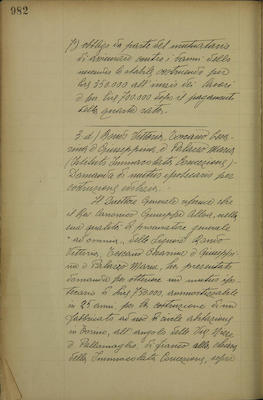 982
7) obbligo da parte del mutuatario
di assicurare contro i danni dello
incendio lo stabile costruendo per
Lire 350.000 all'inizio dei lavori
e per Lire 700.000 dopo il pagamento
della quarta rata.
3 d)
Vittoria,
e Giuseppina, e Palazzo Maria
(Istituto Immacolata Concezione)
Domanda di mutuo ipotecario per
costruzione edilizia.
Il Direttore Generale informa che
il Rev. Canonico Giuseppe Allois, nella
sua qualità di procuratore generale
"ad omnia" delle Signore
Vittoria,
e Giuseppi-
na e Palazzo Maria, ha presentato
domanda per ottenere un mutuo ipo-
tecario di Lire 750.000, ammortizzabile
in 25 anni per la costruzione di un
fabbricato ad uso civile abitazione
in Torino, all'angolo delle Vie Nizza
e Pallamaglio, di fianco alla chiesa
della Immacolata Concezione, sopra